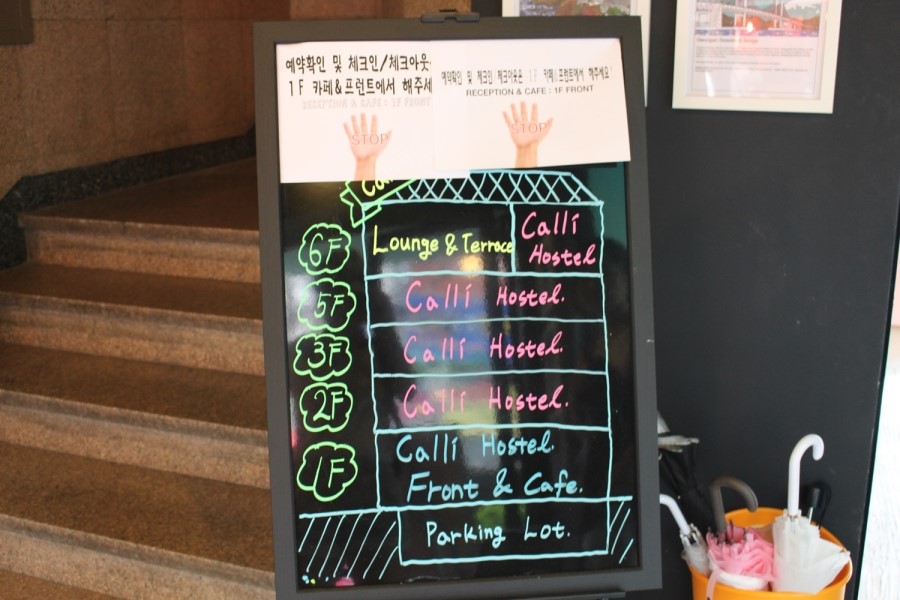 예약확인 및 체크인/체크아웃
1F 카페&프런트에서 해주세
RECEPTION & CAFE : 1F FRONT
STOP
예약확인 및 체크인 체크아웃은 1F 카페&프런트에서 해주세요!
RECEPTION & CAFE : 1F FRONT
STOP
6F Lounge & Terrace Calli Hostel
5F Calli Hostel.
3F Calli Hostel.
2F Calli Hostel.
1F Calli Hostel.
Front & Cafe.
Parking Lot.